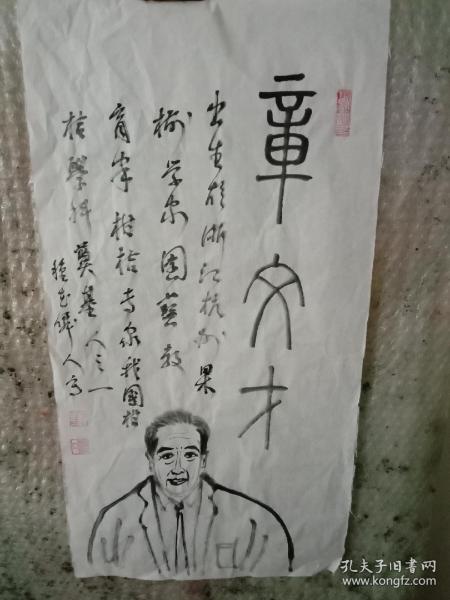 章文才
出生於浙江杭州果
树学家园艺教
育家柑桔专家我國柑
桔學科奠基人之一
種芒僻人寫
孔夫子旧书网
www.kongfz.com